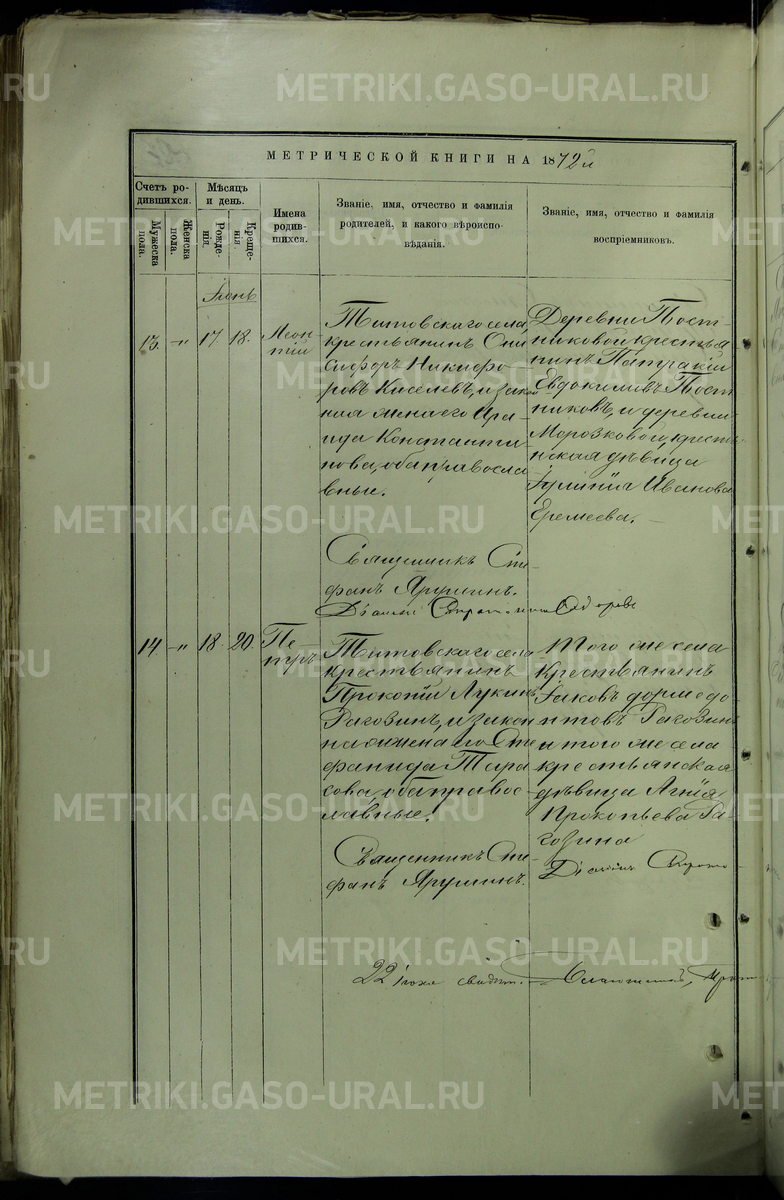 METRIKI.GASO-URAL.RU
МЕТРИЧЕСКОЙ КНИГИ НА 1872й
Счетъ ро-
дившихся.
Мужеска пола.
Женска пола.
Мѣсяцъ
и день.
Рожде-
нія.
Креще-
нія.
Имена
родив-
шихся.
Званіе, имя, отчество и фамилія
родителей, и какого вѣроиспо-
вѣданія.
Званіе, имя, отчество и фамилія
воспріемниковъ.
Іюнь
13. —„ 17. 18. Леон-
тій
Титовскаго села
крестьянинъ Они
сифоръ Никифо-
ровъ Киселевъ, и закон
ная жена его Ира-
ида Константи
нова, оба правосла
вные.
Священникъ Сте-
фанъ Ярушинъ.
Деревни Пост-
никовой крестья
нинъ Патракій
Евдокимовъ Пост
никовъ, и деревни
Морозковой, кресть-
янская дѣвица
Іулианія Иванова
Еремеева.
14. —„ 18. 20. Пе-
тръ
Титовскаго села
крестьянинъ
Прокопій Лукинъ
Раговинъ, и закон
ная жена его Сте
фанида Тара
сова, оба правос-
лавные.
Священникъ Сте-
фанъ Ярушинъ.
Того же села
крестьянинъ
Іаковъ дормедо
нтовъ Раговинъ
и того же села
крестьянская
дѣвица Агнія
Прокопьева Ра-
говина
Діаконъ
22 іюля свидѣт.